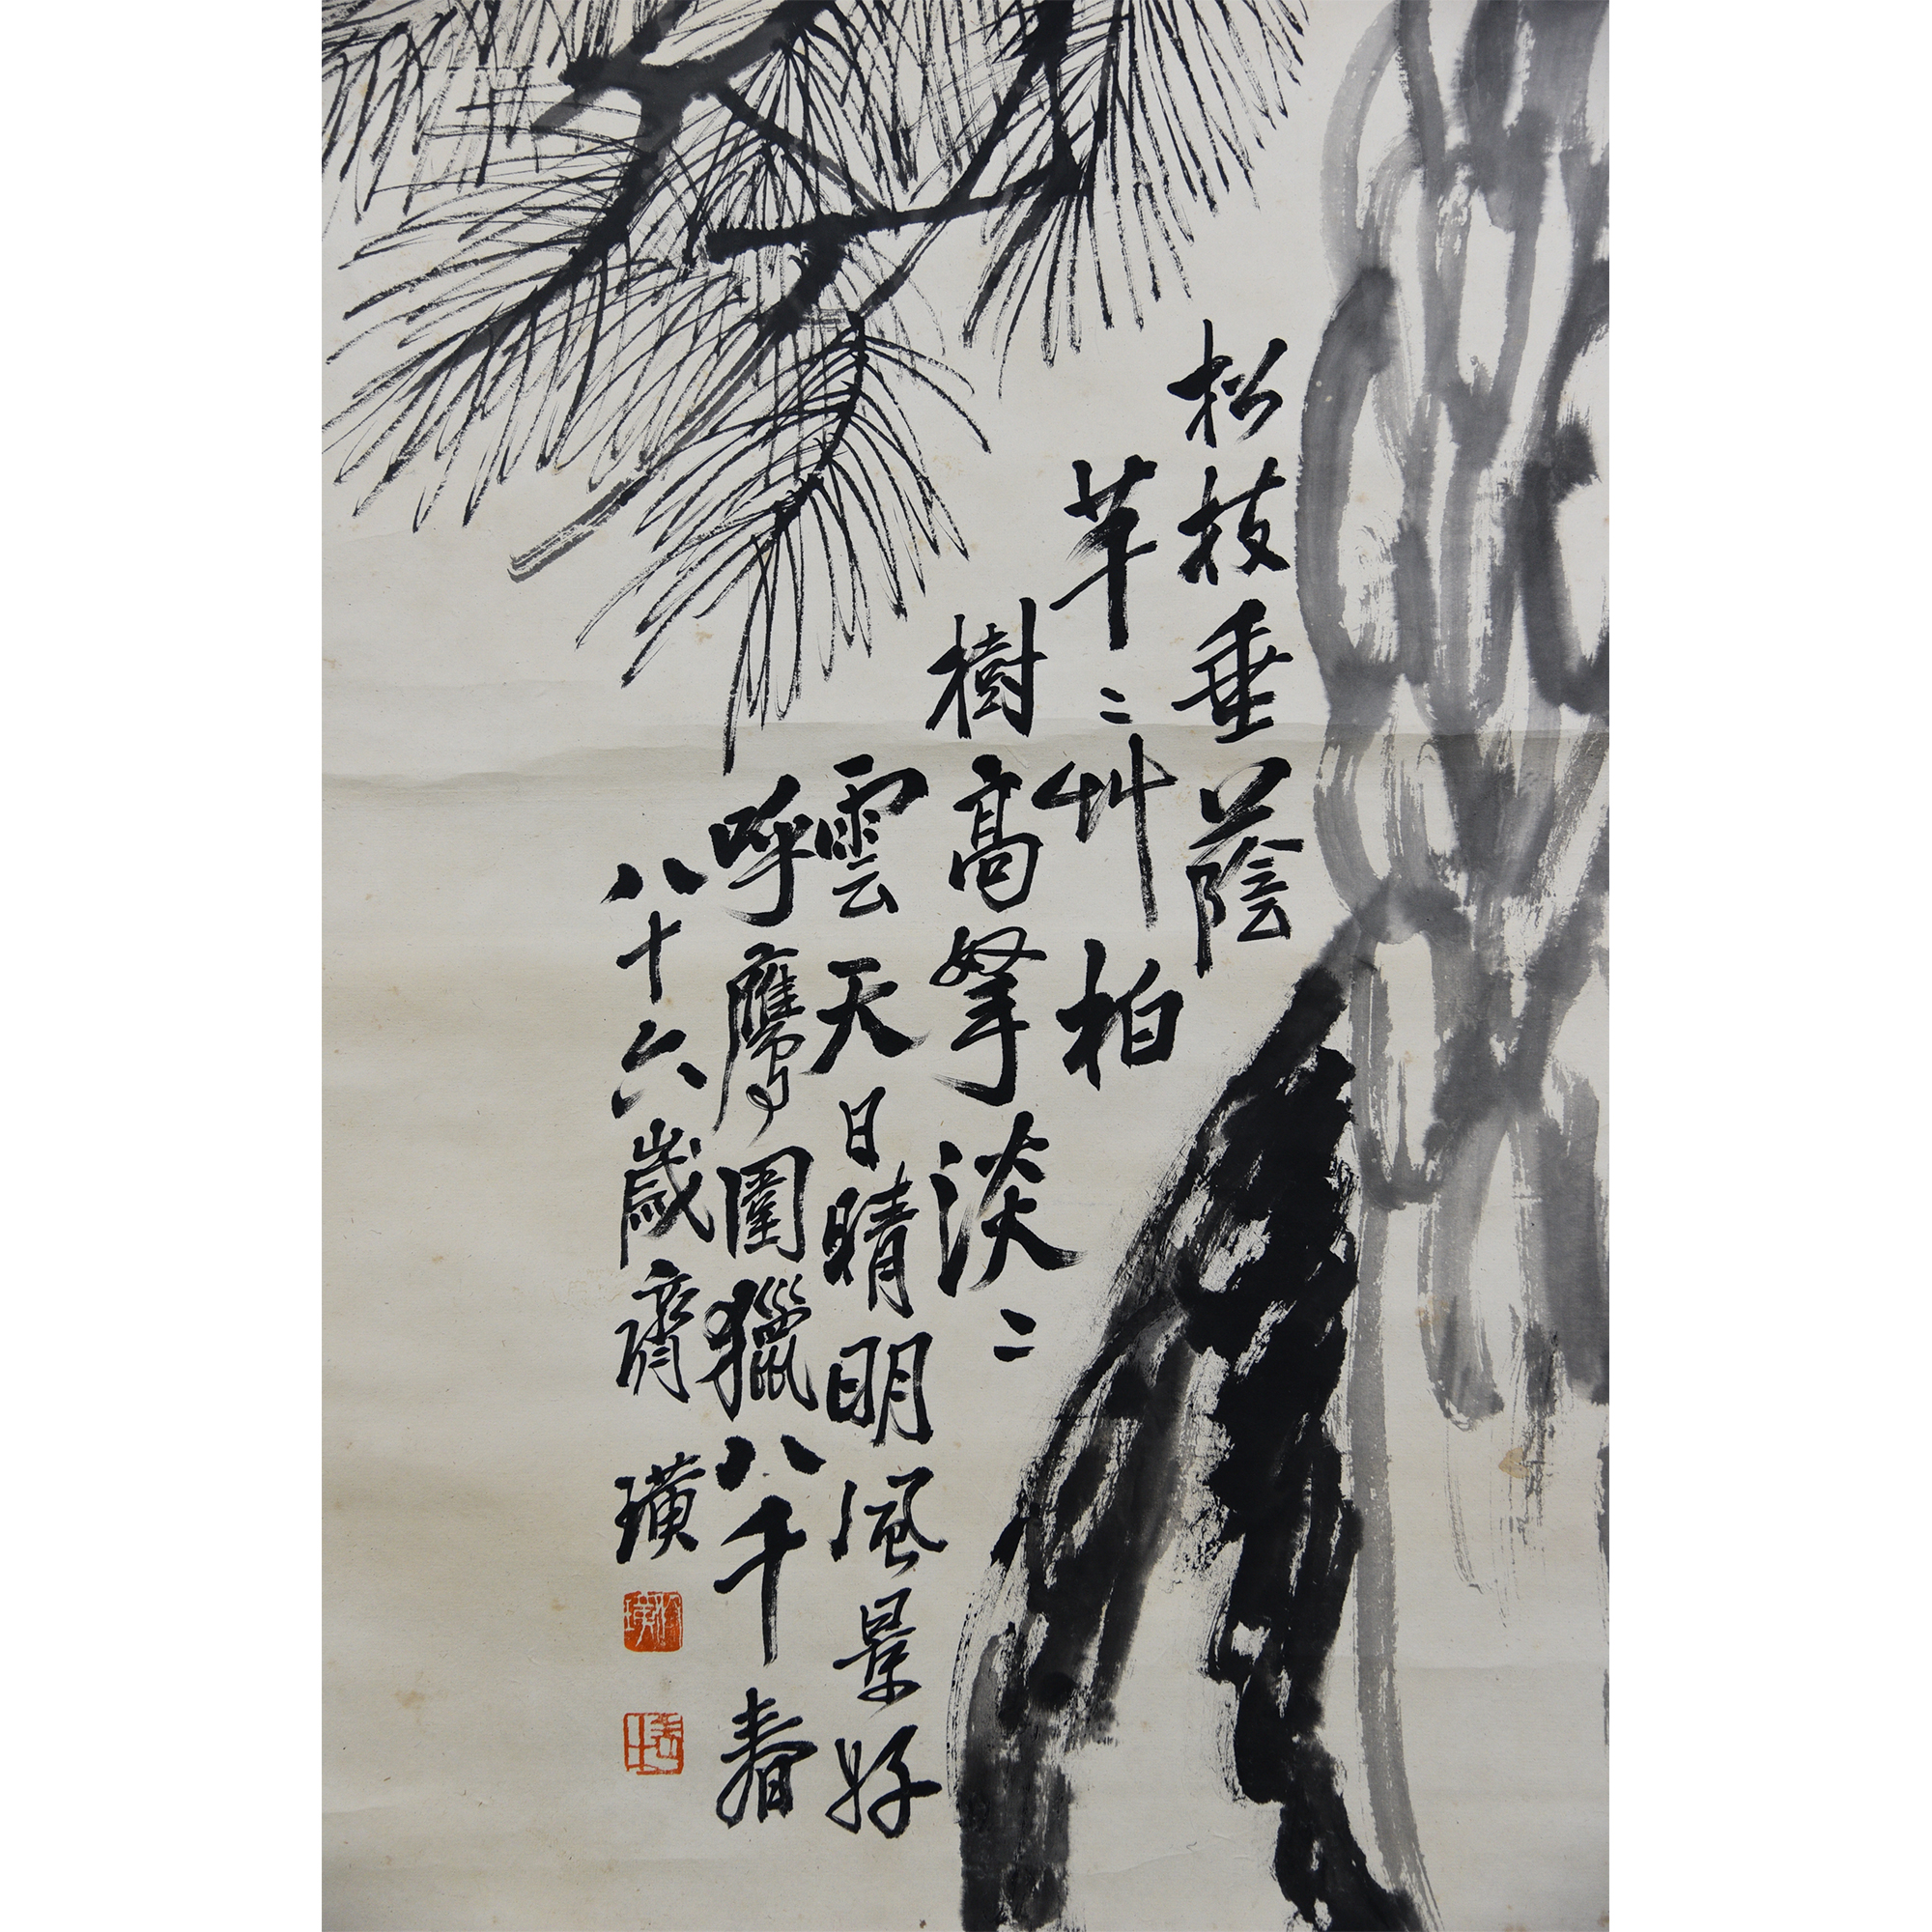 松枝垂蔭
芊二艸柏
樹高拏淡二
雲天日晴明風景好
呼鷹圍獵八千春
八十六歲齊璜